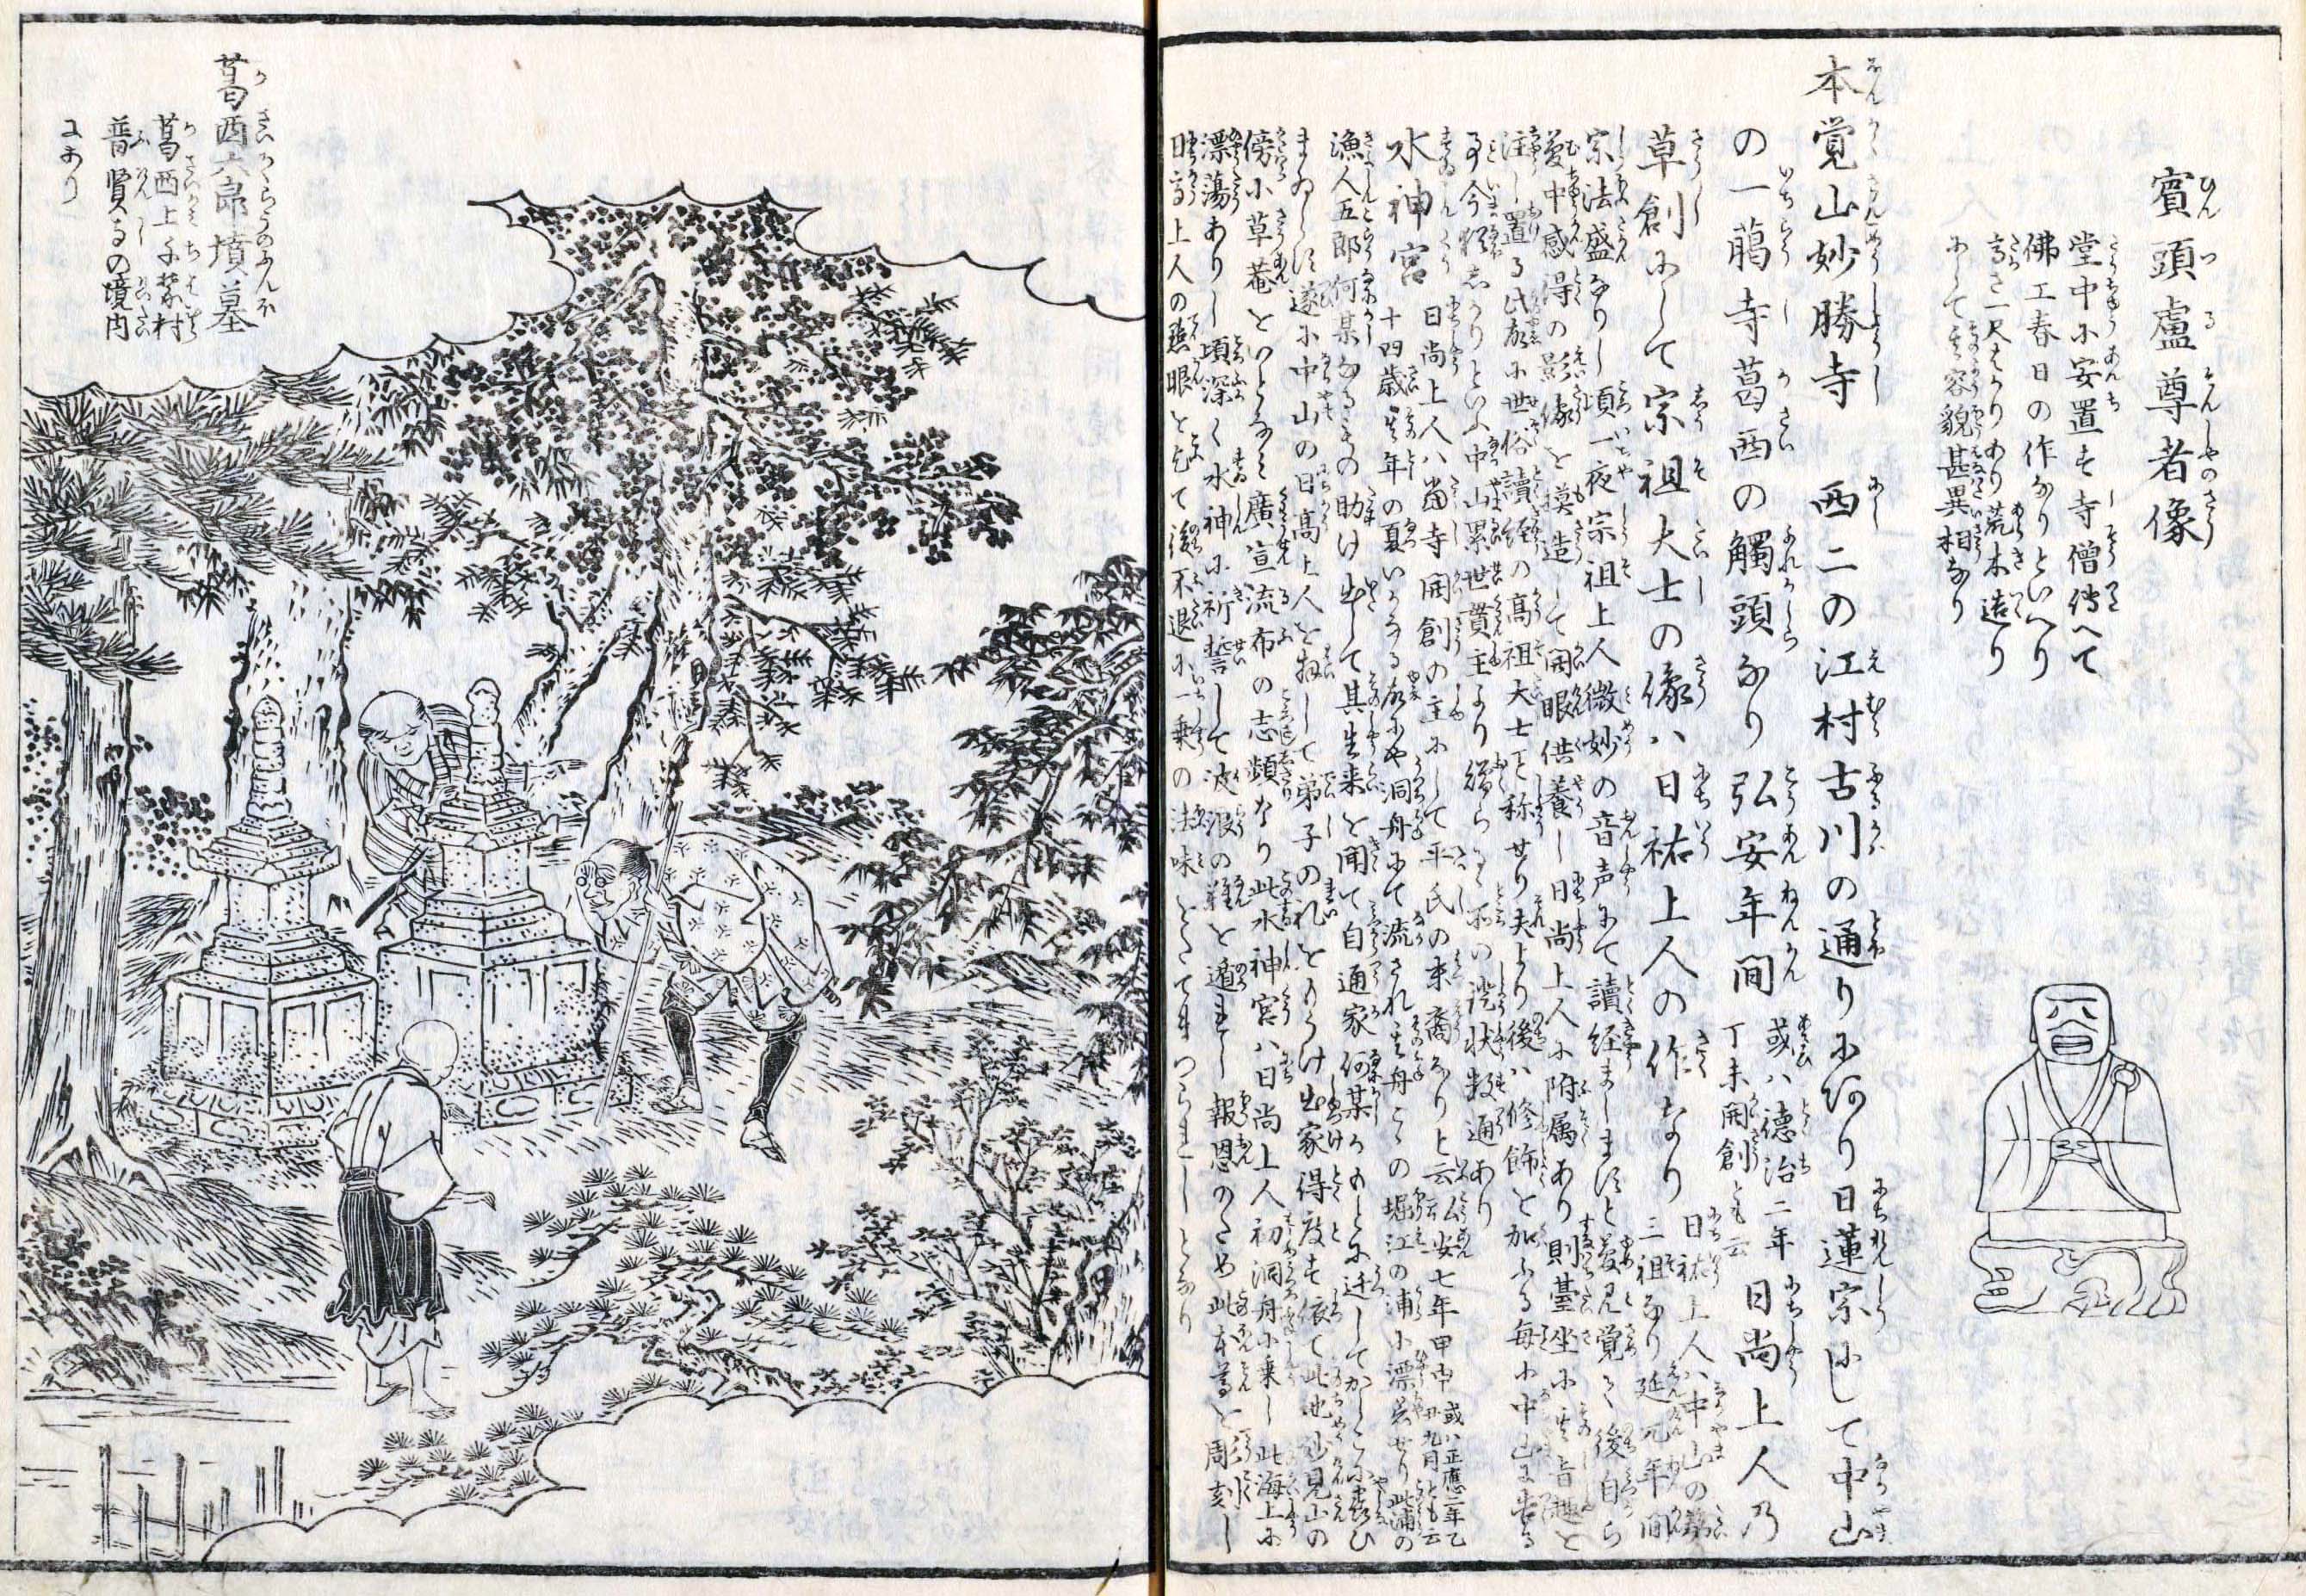 賓頭盧尊者像
堂中に安置す寺僧傳へて
佛工春日の作なりといへり
高さ一尺はかりあり荒木造り
にして其容貌甚異相なり
本覚山妙勝寺 西二の江村古川の通りにあり日蓮宗にして中山
の一﨟寺葛西の觸頭なり弘安年間 或ハ徳治二年丁未開創とも云 日尚上人乃
草創にして宗祖大士の像ハ日祐上人の作なり 日祐上人ハ中山の第三祖なり延元年間
宗法盛なりし頃一夜宗祖上人微妙の音声にて讀経ましますと夢見覚て後自ら
夢中感得の影像を摸造して開眼供養し日尚上人に附属あり則臺坐に其旨趣を
注し置る此故に世俗讀経の高祖大士と称せり夫より後ハ修飾を加ふる毎に中山に告る
事今猶しかりといふ中山累世貫主より贈らるゝ所の證状数通あり
水神宮 日尚上人ハ當寺開創の主にして平氏の末裔なりと云云弘安七年甲申 或ハ正應二年乙丑九月とも云
十四歳其年の夏いかなる故にや洞舟にて流され其舟こゝの堀江の浦に漂著せり此浦の
漁人五郎何某なるものゝ助け出して其生来を聞て自通家何某かもとに迁してかしこに養ひ
まゐらす遂に中山の日高上人を拝して弟子の礼をまうけ出家得度す依て此地妙見山の
傍に草菴をいとなみ廣宣流布の志頻なり此水神宮ハ日尚上人初洞舟に乗し此海上に
漂蕩ありし頃深く水神に祈誓して波浪の難を遁まし報恩のため此本尊を周刻し
日高上人の點眼を乞て後不退に一乗の法味をたてまつられしとなり
葛西六郎墳墓
葛西上千葉村
普賢寺の境内
にあり